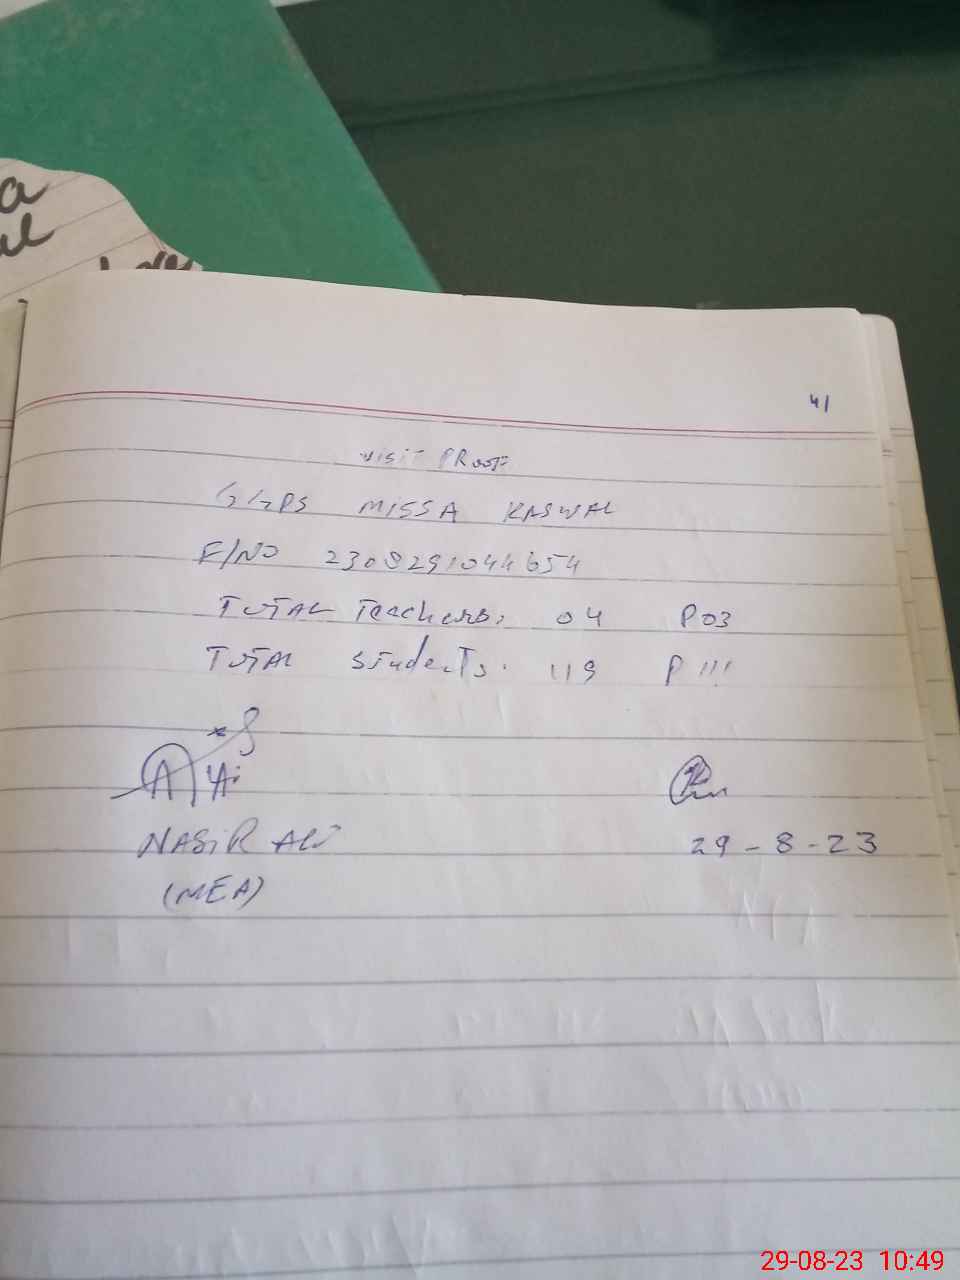 41
VISIT PROOF
GGPS MISSA KASWAL
F/NO 2308291044654
TOTAL Teachers: 04 P 03
TOTAL Students: 119 P 111
NASIR ALI
29-8-23
(MEA)
29-08-23 10:49